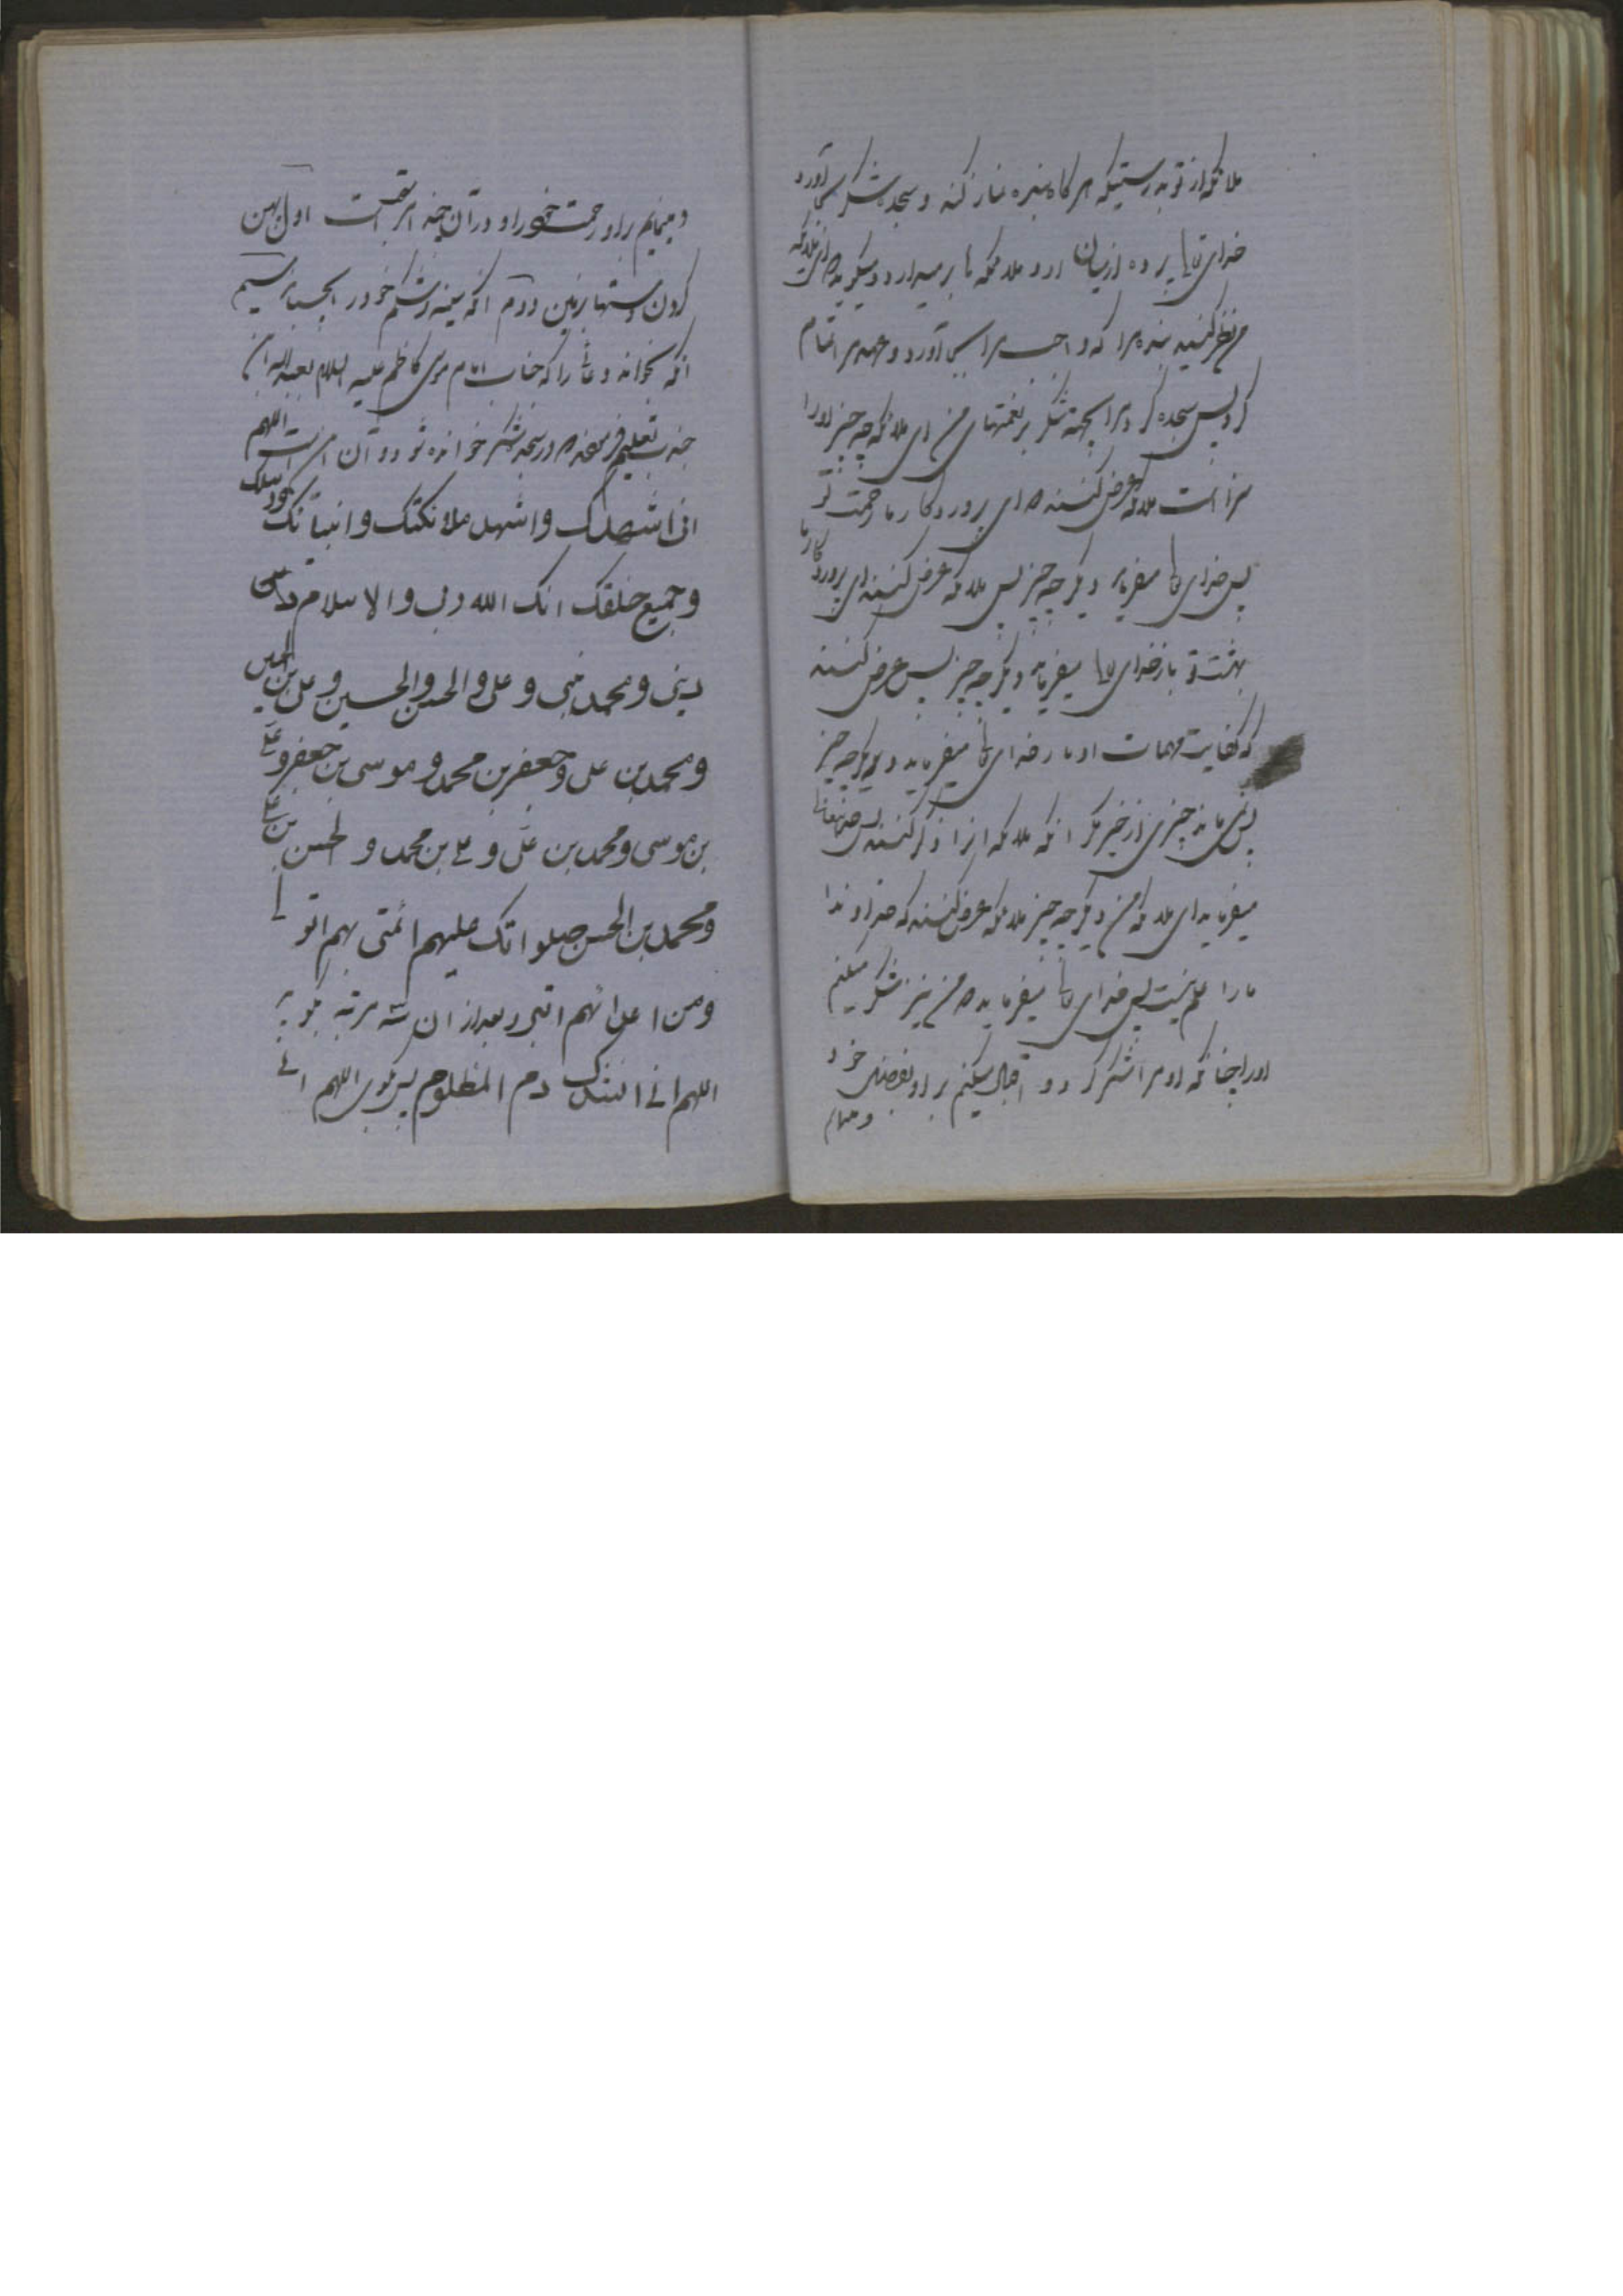 ملائکه از تو بدرستیکه هر گاه بنده نماز کند و سجده شکر بجا آورد
خدای تعالی پرده از میان او و ملائکه بر میدارد و میگوید که ای ملائکه
من نظر کنید بنده مرا که واجب مرا بجا آورد و عهد مرا تمام
کرد پس سجده کرد مرا بجهة شکر بر نعمتهای من ای ملائکه چه چیز او را
سزا است ملائکه عرض کنند که ای پروردگار ما رحمت تو
پس خدای تعالی میفرماید دیگر چه چیز پس ملائکه عرض کنند ای پروردگار ما
بهشت تو باز خدای تعالی میفرماید دیگر چه چیز پس عرض کنند
که کفایت مهمات او باز خدای تعالی میفرماید دیگر چه چیز
پس نماند چیزی از خیر مگر آنکه ملائکه انرا ذکر کنند پس حقتعالی
میفرماید ای ملائکه من دیگر چه چیز ملائکه عرض کنند که خداوندا
ما را علم نیست پس خدای تعالی میفرماید که من نیز شکر میکنم
او را چنانکه او مرا شکر کرد و اقبال میکنم بر او بفضل خود
و مینمایم
و مینمایم باو رحمت خود را و در آن چند امر مستحب است اول پهن
کردن دستها بزمین دوم آنکه سینه و شکم خود را بچسباند سیم
آنکه بخواند دعائی را که جناب امام موسی کاظم علیه السلام بعبدالله بن
جندب تعلیم فرمودند که در سجده شکر خوانده شود و آن اینست اللهم
انی اشهدک واشهد ملائکتک وانبیائک ورسلک
وجمیع خلقک انک الله ربی والاسلام
دینی ومحمد نبیی وعلی والحسن والحسین وعلی بن الحسین
ومحمد بن علی وجعفر بن محمد وموسی بن جعفر وعلی
بن موسی ومحمد بن علی وعلی بن محمد والحسن بن علی
ومحمد بن الحسن صلواتک علیهم ائمتی بهم اتولی
ومن اعدائهم اتبرء بعد از ان سه مرتبه بگوید
اللهم انی انشدک دم المظلوم پس بگوی اللهم انی